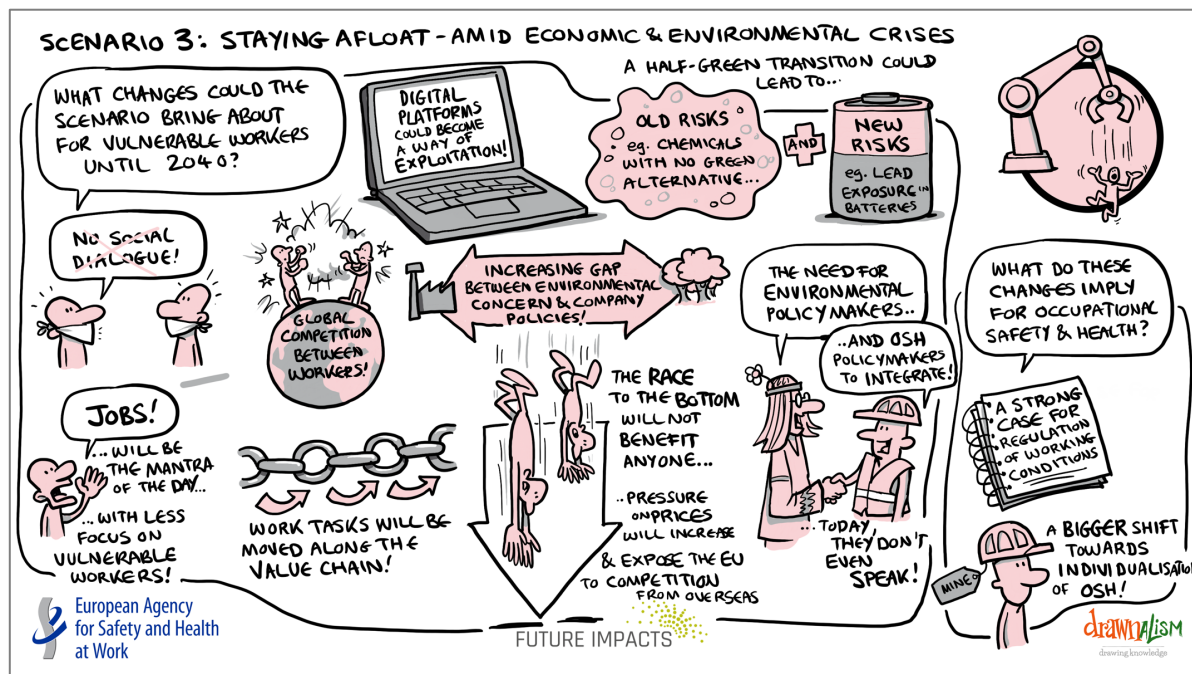 SCENARIO 3: STAYING AFLOAT - AMID ECONOMIC & ENVIRONMENTAL CRISES
WHAT CHANGES COULD THE
SCENARIO BRING ABOUT
FOR VULNERABLE WORKERS
UNTIL 2040?
NO SOCIAL
DIALOGUE!
JOBS!
...WILL BE
THE MANTRA
OF THE DAY...
...WITH LESS
FOCUS ON
VULNERABLE
WORKERS!
DIGITAL
PLATFORMS
COULD BECOME
A WAY OF
EXPLOITATION!
GLOBAL
COMPETITION
BETWEEN
WORKERS!
WORK TASKS WILL BE
MOVED ALONG THE
VALUE CHAIN!
A HALF-GREEN TRANSITION COULD
LEAD TO...
OLD RISKS
eg. CHEMICALS
WITH NO GREEN
ALTERNATIVE...
AND
NEW
RISKS
eg. LEAD
EXPOSURE IN
BATTERIES
INCREASING GAP
BETWEEN ENVIRONMENTAL
CONCERN & COMPANY
POLICIES!
THE RACE
TO THE BOTTOM
WILL NOT
BENEFIT
ANYONE...
..PRESSURE
ON PRICES
WILL INCREASE
& EXPOSE THE EU
TO COMPETITION
FROM OVERSEAS
THE NEED FOR
ENVIRONMENTAL
POLICYMAKERS..
..AND OSH
POLICYMAKERS
TO INTEGRATE!
...TODAY,
THEY DON'T
EVEN
SPEAK!
WHAT DO THESE
CHANGES IMPLY
FOR OCCUPATIONAL
SAFETY & HEALTH?
A STRONG
CASE FOR
REGULATION
OF WORKING
CONDITIONS
A BIGGER SHIFT
TOWARDS
INDIVIDUALISATION
OF OSH!
MINE
European Agency
for Safety and Health
at Work
FUTURE IMPACTS
drawnalism
drawing knowledge